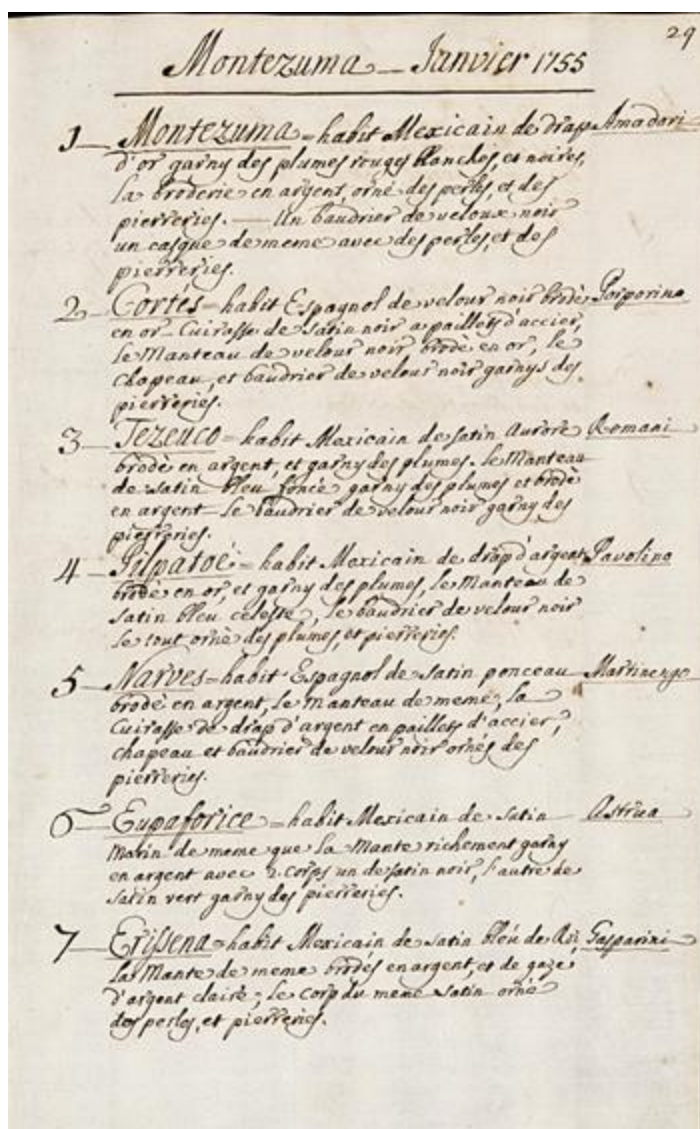 29
Montezuma – Janvier 1755
1 – Montezuma = habit Mexicain de drap Amadori
d'or garny des plumes rouges blanches, et noires,
la broderie en argent, orné des perles, et des
pierreries. — Un baudrier de veloux noir
un casque de meme avec des perles, et des
pierreries.
2 – Cortés = habit Espagnol de velour noir brodè Porporino
en or – Cuirasse de satin noir a paillets d'accier,
le Manteau de velour noir brodè en or, le
chapeau, et baudrier de velour noir garnys des
pierreries.
3 – Tezeuco = habit Mexicain de satin Aurore Romani
brodè en argent, et garny des plumes. le Manteau
de satin bleu foncé garny des plumes et brodè
en argent – le baudrier de velour noir garny des
pierreries.
4 – Pilpatoé = habit Mexicain de drap d'argent Pavolino
brodè en or, et garny des plumes, le Manteau de
satin bleu celeste, le baudrier de velour noir
le tout ornè des plumes, et pierreries.
5 – Narves = habit Espagnol de satin ponceau Martinengo
brodè en argent, le Manteau de meme, la
Cuirasse de drap d'argent en paillets d'accier,
chapeau et baudrier de velour noir ornés des
pierreries.
6 – Eupaforice = habit Mexicain de satin Astrua
Marin de meme que la Mante richement garny
en argent avec 2. corps un de satin noir, l'autre de
satin vert garny des pierreries.
7 – Erissena = habit Mexicain de satin bleu de Gasparini
la Mante de meme brodés en argent, et de gaze
d'argent claire; le corp du meme satin orné
des perles, et pierreries.